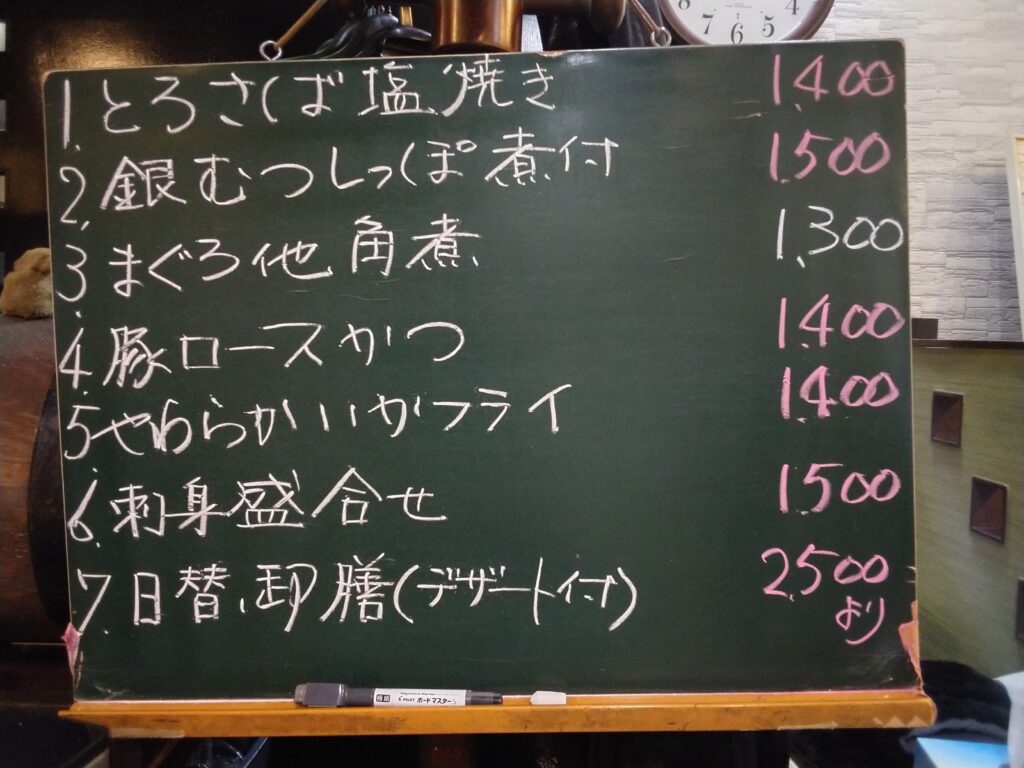 7 6 5 4
1. とろさば塩焼き 1.400
2. 銀むつしっぽ煮付 1.500
3. まぐろ他角煮 1.300
4. 豚ロースかつ 1.400
5. やわらかいかフライ 1.400
6. 刺身盛合せ 1.500
7. 日替、御膳(デザート付) 2.500
より
PILOT ボードマスターS